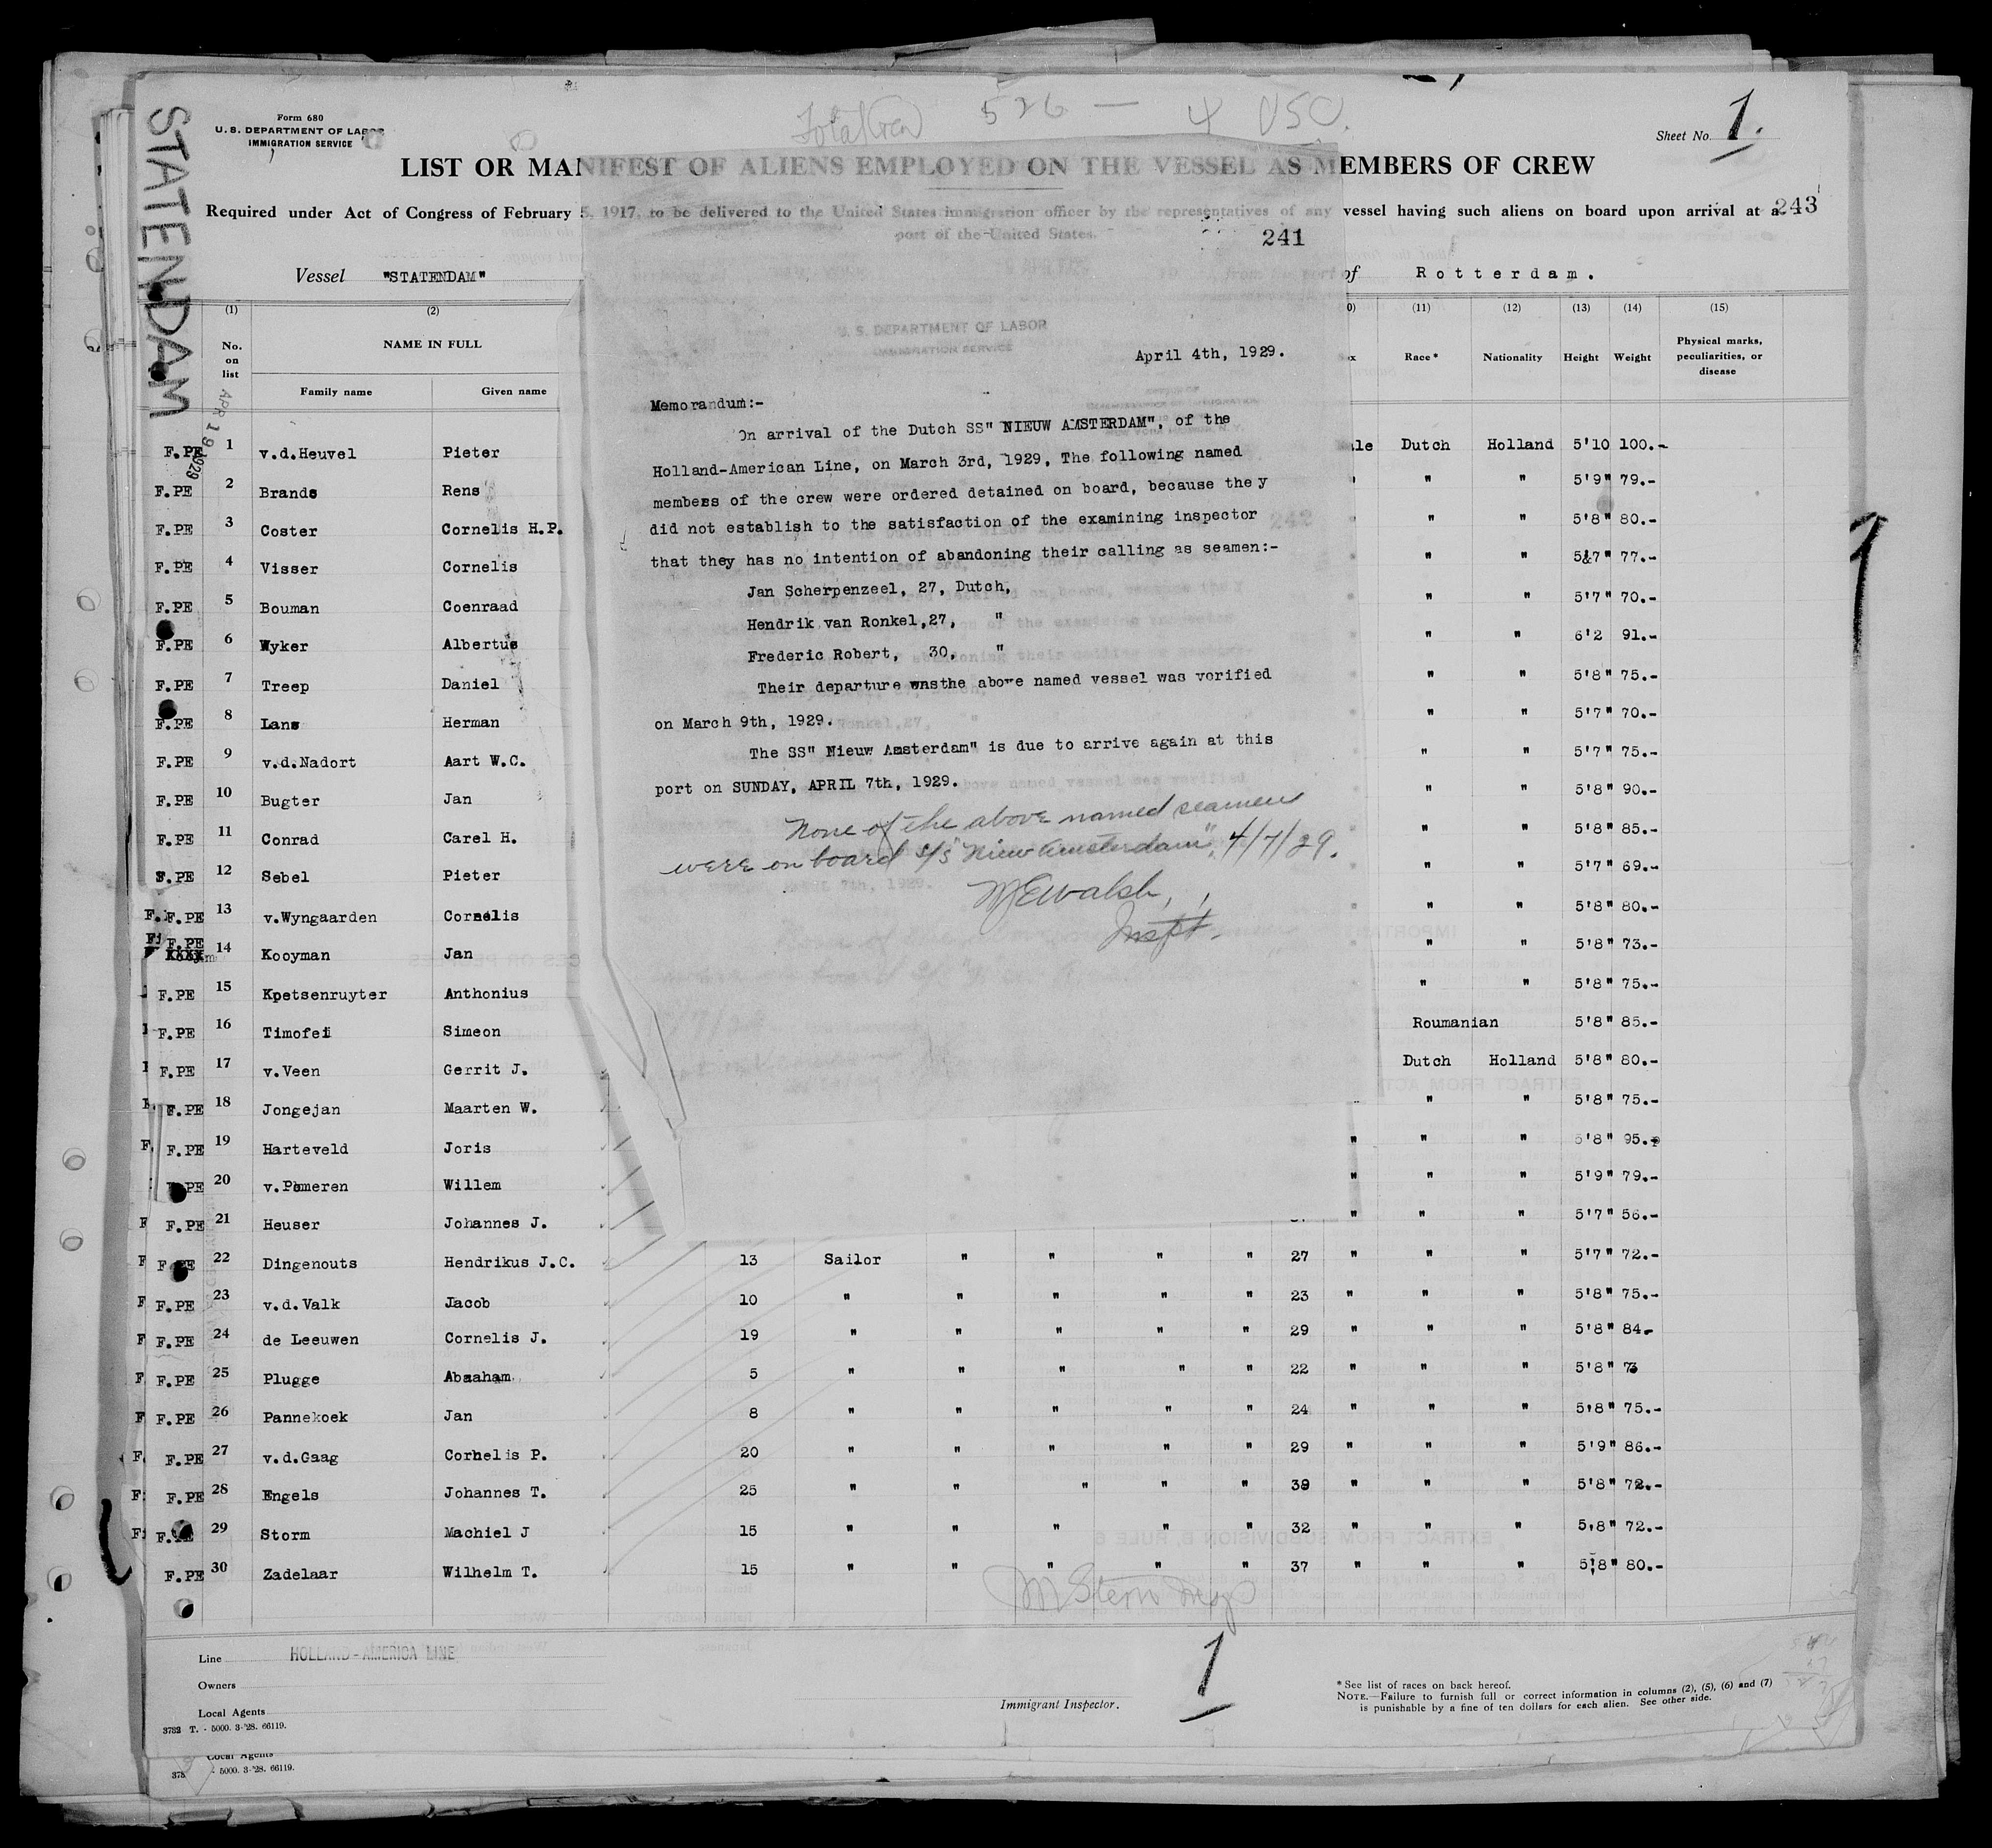 Total Crew 526 — 4 USC.
Form 680
U. S. DEPARTMENT OF LABOR
IMMIGRATION SERVICE
Sheet No. 1.
STATENDAM
LIST OR MANIFEST OF ALIENS EMPLOYED ON THE VESSEL AS MEMBERS OF CREW
Required under Act of Congress of February 5, 1917, to be delivered to the United States immigration officer by the representatives of any vessel having such aliens on board upon arrival at a
port of the United States.
243
241
Vessel "STATENDAM" of Rotterdam.
(1) (2) (11) (12) (13) (14) (15)
No. on list NAME IN FULL Race* Nationality Height Weight Physical marks, peculiarities, or disease
Family name Given name
APR 19 1929
U. S. DEPARTMENT OF LABOR
IMMIGRATION SERVICE
April 4th, 1929.
Memorandum:-
On arrival of the Dutch SS" NIEUW AMSTERDAM", of the
Holland-American Line, on March 3rd, 1929, The following named
members of the crew were ordered detained on board, because they
did not establish to the satisfaction of the examining inspector
that they has no intention of abandoning their calling as seamen:-
Jan Scherpenzeel, 27, Dutch,
Hendrik van Ronkel,27, "
Frederic Robert, 30, "
Their departure on the above named vessel was verified
on March 9th, 1929.
The SS" Nieuw Amsterdam" is due to arrive again at this
port on SUNDAY, APRIL 7th, 1929.
None of the above named seamen
were on board S/S "Nieuw Amsterdam", 4/7/29.
M E Walsh,
Inspt.
242
F.PE 1 v.d.Heuvel Pieter Dutch Holland 5'10 100.-
F.PE 2 Brands Rens " " 5'9" 79.-
F.PE 3 Coster Cornelis H.P. " " 5'8" 80.-
F.PE 4 Visser Cornelis " " 5&7" 77.-
F.PE 5 Bouman Coenraad " " 5'7" 70.-
F.PE 6 Wyker Albertus " " 6'2 91.-
F.PE 7 Treep Daniel " " 5'8" 75.-
F.PE 8 Lans Herman " " 5'7" 70.-
F.PE 9 v.d.Nadort Aart W.C. " " 5'7" 75.-
F.PE 10 Bugter Jan " " 5'8" 90.-
F.PE 11 Conrad Carel H. " " 5'8" 85.-
F.PE 12 Sebel Pieter " " 5'7" 69.-
F.PE 13 v.Wyngaarden Cornelis " " 5'8" 80.-
F.PE 14 Kooyman Jan " " 5'8" 73.-
F.PE 15 Kpetsenruyter Anthonius " " 5'8" 75.-
F.PE 16 Timofei Simeon Roumanian 5'8" 85.-
F.PE 17 v.Veen Gerrit J. Dutch Holland 5'8" 80.-
F.PE 18 Jongejan Maarten W. " " 5'8" 75.-
F.PE 19 Harteveld Joris " " " 5'8" 95.-
F.PE 20 v.Pomeren Willem " " " 5'9" 79.-
F.PE 21 Heuser Johannes J. " " " 5'7" 56.-
F.PE 22 Dingenouts Hendrikus J.C. 13 Sailor " " " " 27 " " " 5'7" 72.-
F.PE 23 v.d.Valk Jacob 10 " " " " " 23 " " " 5'8" 75.-
F.PE 24 de Leeuwen Cornelis J. 19 " " " " " 29 " " " 5'8" 84-
F.PE 25 Plugge Abaaham 5 " " " " " 22 " " " 5'8" 73
F.PE 26 Pannekoek Jan 8 " " " " " 24 " " " 5'8" 75.-
F.PE 27 v.d.Gaag Cornelis P. 20 " " " " " 29 " " " 5'9" 86.-
F.PE 28 Engels Johannes T. 25 " " " " " 39 " " " 5'8" 72.-
F.PE 29 Storm Machiel J 15 " " " " " 32 " " " 5'8" 72.-
F.PE 30 Zadelaar Wilhelm T. 15 " " " " " 37 " " " 5'8" 80.-
M Stern Insp
Line HOLLAND-AMERICA LINE
Owners
Local Agents
3782 T. - 5000. 3-'28. 66119.
Immigrant Inspector.
1
* See list of races on back hereof.
NOTE.—Failure to furnish full or correct information in columns (2), (5), (6) and (7)
is punishable by a fine of ten dollars for each alien. See other side.
Local Agents
- 5000. 3-'28. 66119.